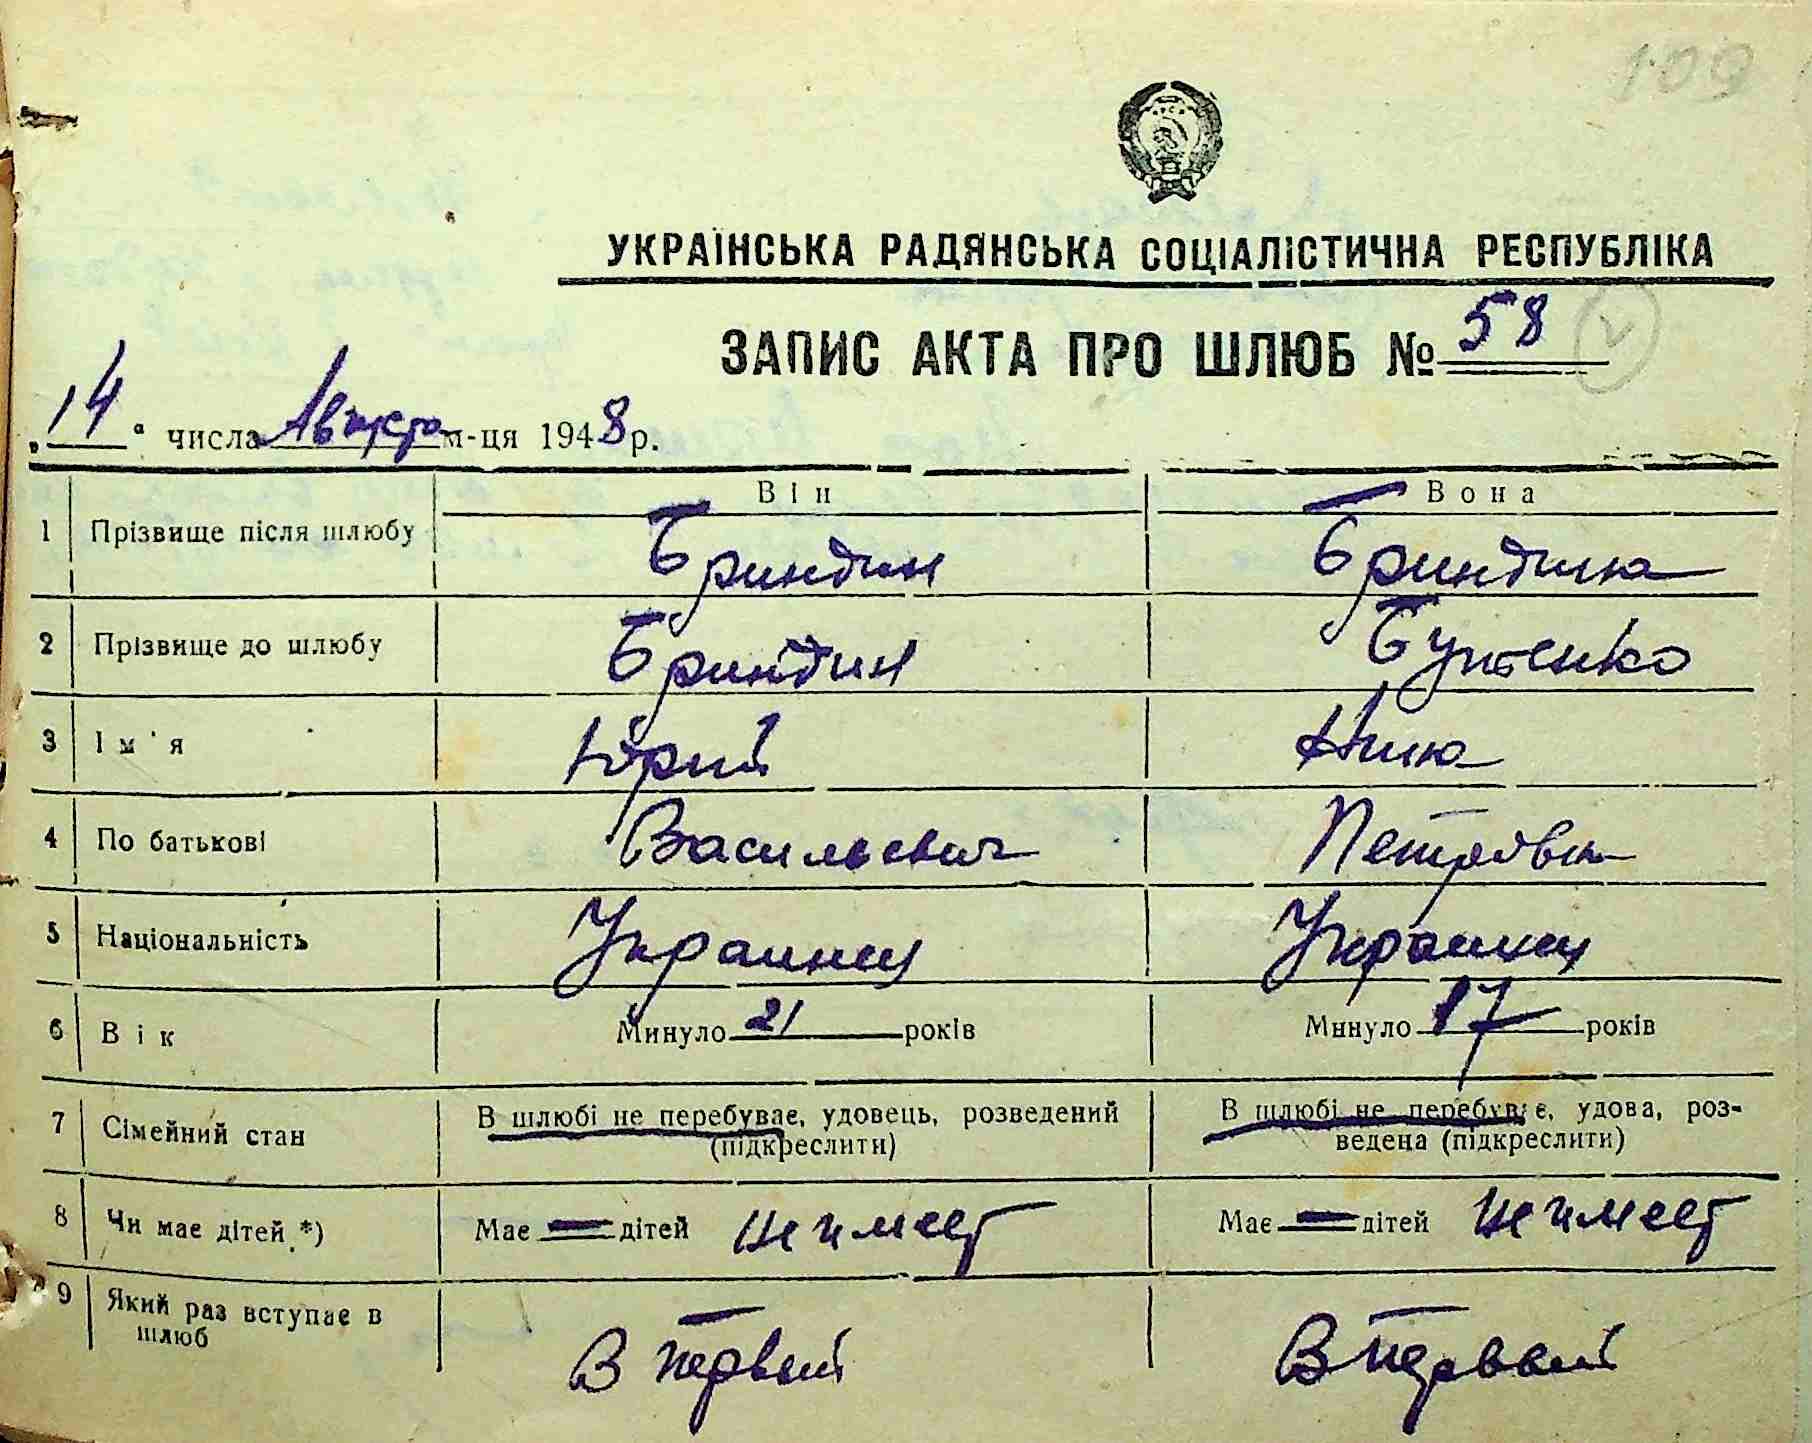 109
УКРАЇНСЬКА РАДЯНСЬКА СОЦІАЛІСТИЧНА РЕСПУБЛІКА
ЗАПИС АКТА ПРО ШЛЮБ № 58
„14“ числа Августа м-ця 1948 р.
Він Вона
1 Прізвище після шлюбу Бриндин Бриндина
2 Прізвище до шлюбу Бриндин Бутенко
3 Ім'я Юрий Нина
4 По батькові Васильевич Петровна
5 Національність Украинец Украинец
6 Вік Минуло 21 років Минуло 17 років
7 Сімейний стан В шлюбі не перебуває, удовець, розведений (підкреслити) В шлюбі не перебуває, удова, роз-
ведена (підкреслити)
8 Чи має дітей *) Має — дітей не имеет Має — дітей не имеет
9 Який раз вступає в шлюб В первый В первый